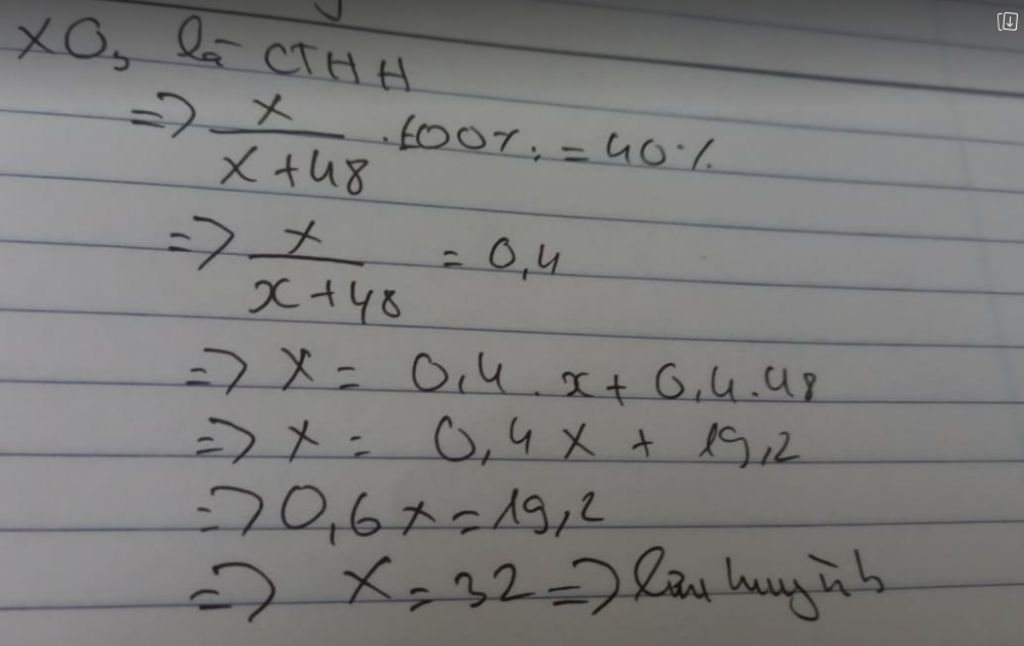 XO₃ là CTHH
=> x / x+48 .100% = 40%
=> x / x+48 = 0,4
=> x = 0,4 . x + 0,4.48
=> x = 0,4x + 19,2
=> 0,6x = 19,2
=> x = 32 => lưu huỳnh